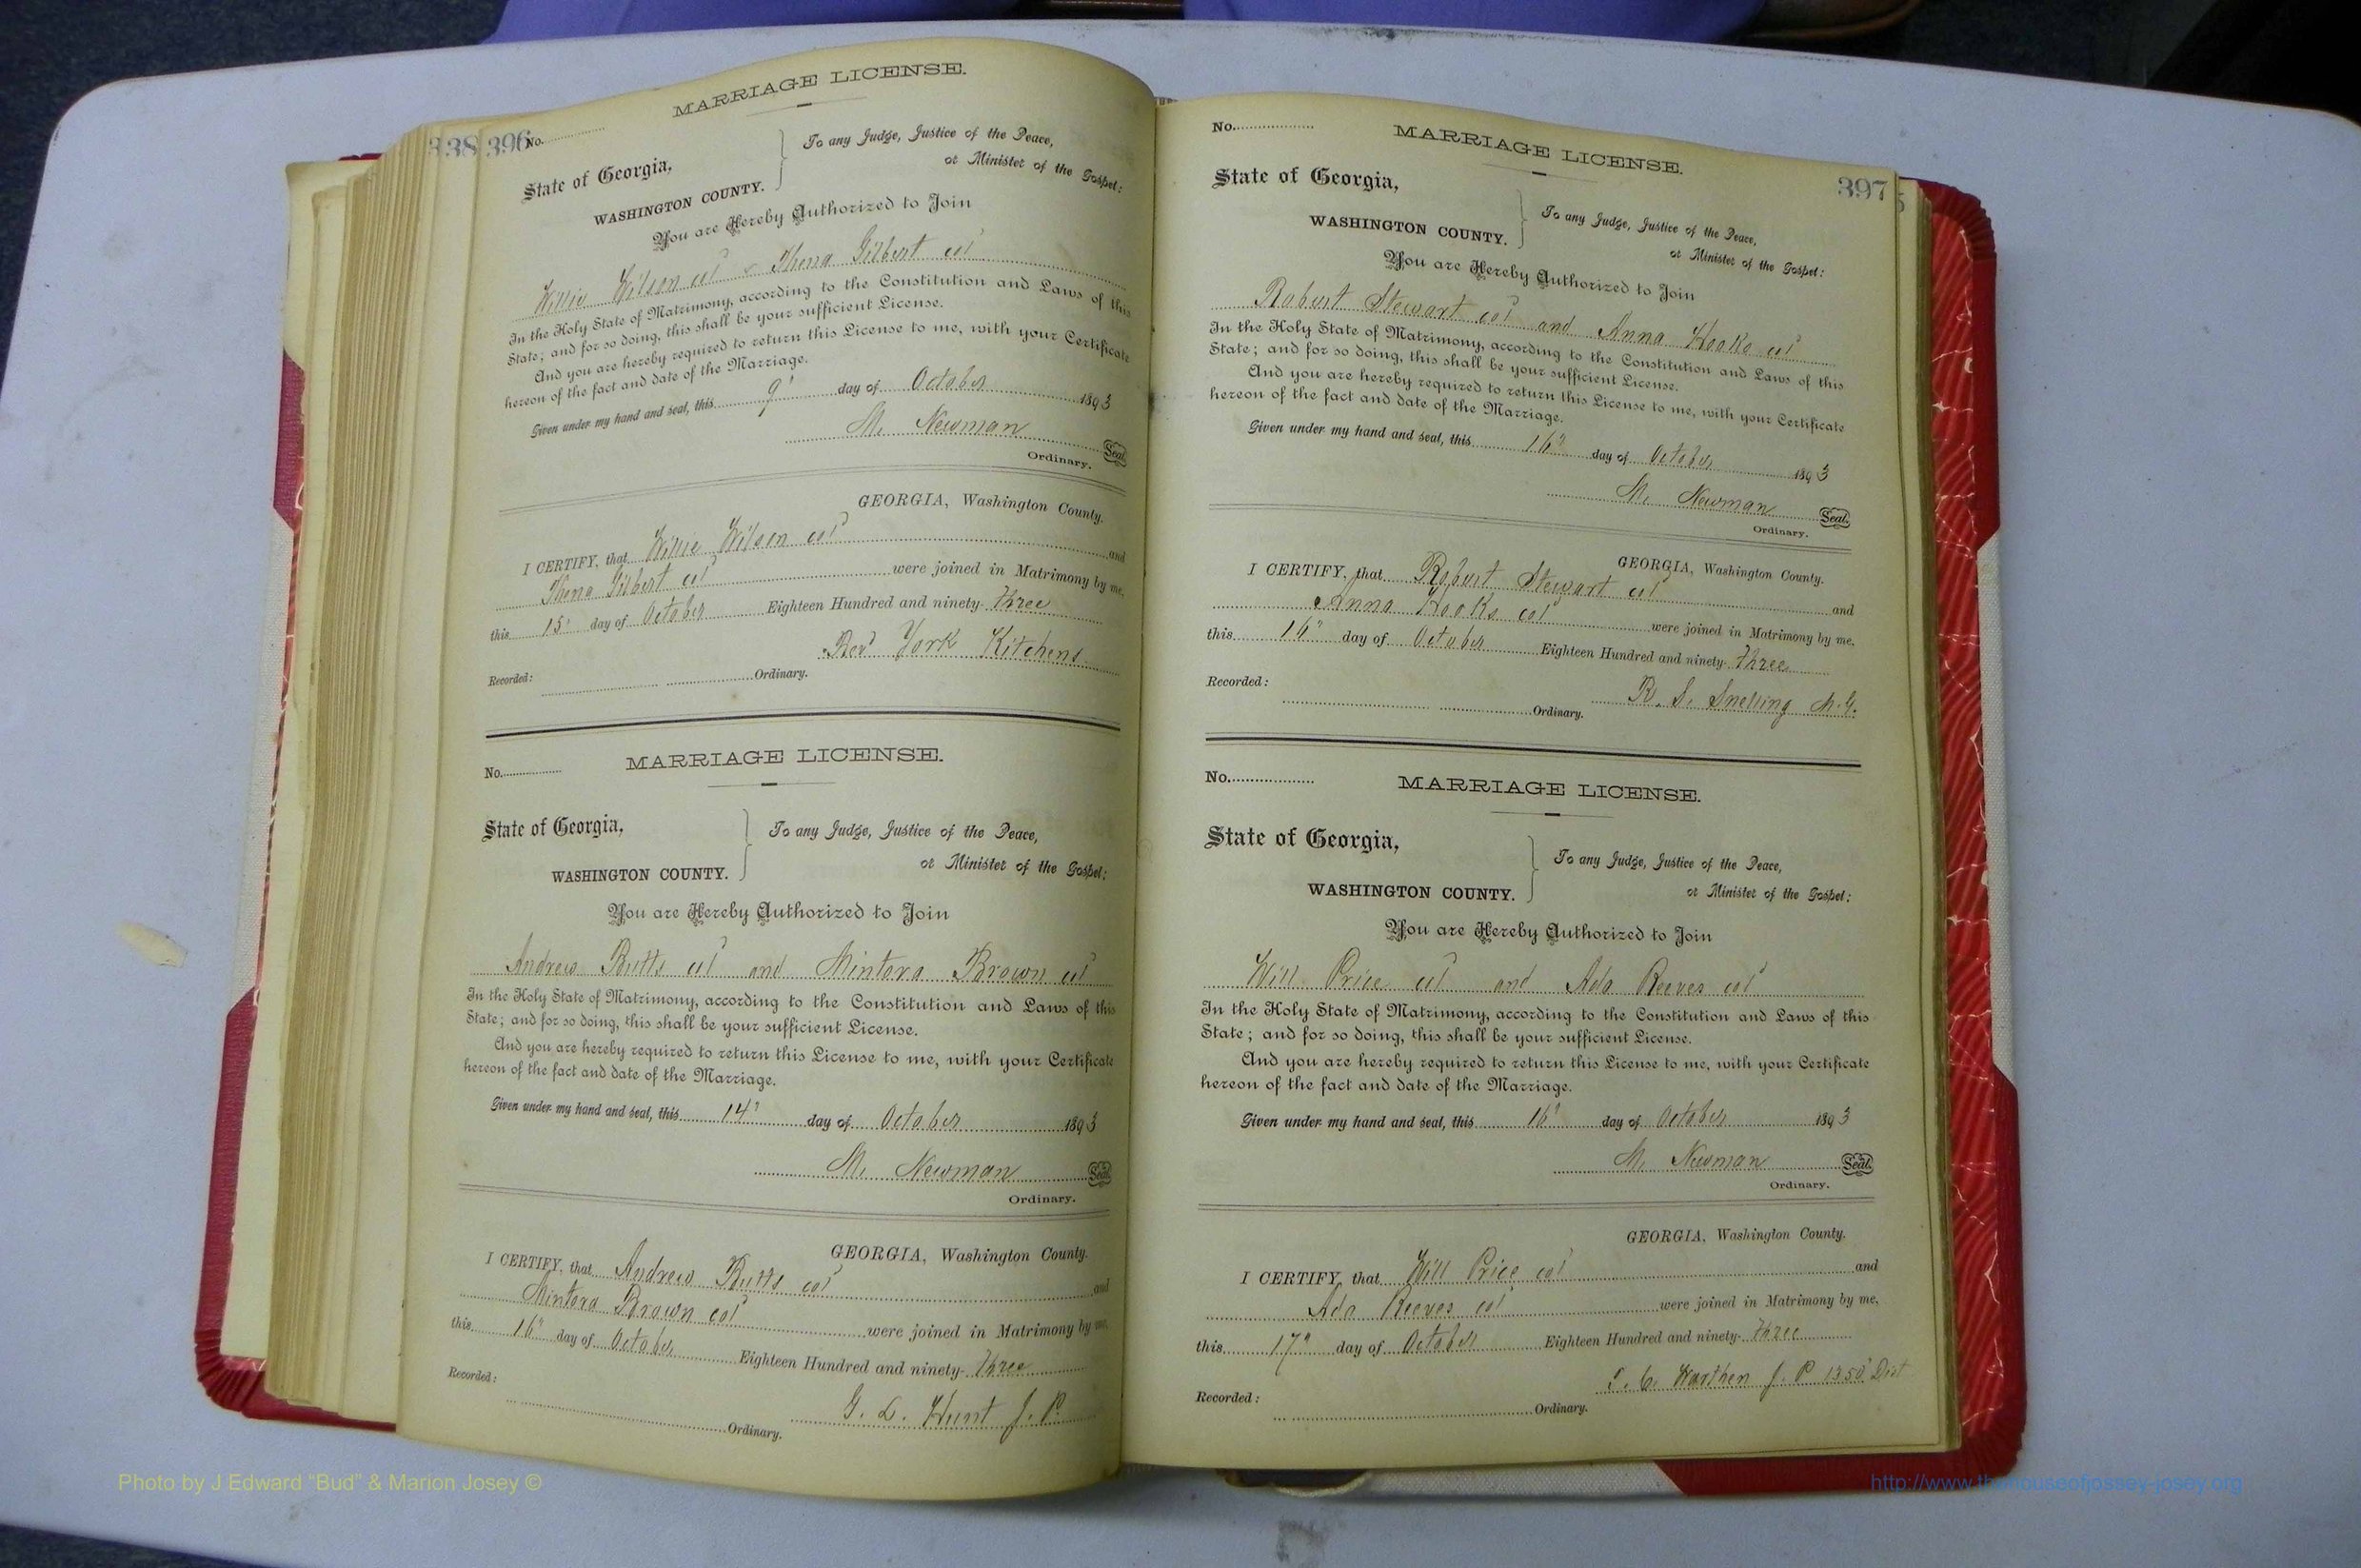 338 396
No.
MARRIAGE LICENSE.
State of Georgia,
WASHINGTON COUNTY.
To any Judge, Justice of the Peace,
or Minister of the Gospel:
You are Hereby Authorized to Join
Willie Wilson col Gilbert col
In the Holy State of Matrimony, according to the Constitution and Laws of this
State; and for so doing, this shall be your sufficient License.
And you are hereby required to return this License to me, with your Certificate
hereon of the fact and date of the Marriage.
Given under my hand and seal, this 9" day of October 1893
M. Newman Seal.
Ordinary.
GEORGIA, Washington County.
I CERTIFY, that Willie Wilson col and
Gilbert col were joined in Matrimony by me,
this 15" day of October Eighteen Hundred and ninety-three
Rev York Kitchens
Recorded: Ordinary.
MARRIAGE LICENSE.
No.
State of Georgia,
WASHINGTON COUNTY.
To any Judge, Justice of the Peace,
or Minister of the Gospel:
You are Hereby Authorized to Join
Andrew Butts col and Mintora Brown col
In the Holy State of Matrimony, according to the Constitution and Laws of this
State; and for so doing, this shall be your sufficient License.
And you are hereby required to return this License to me, with your Certificate
hereon of the fact and date of the Marriage.
Given under my hand and seal, this 14" day of October 1893
M. Newman Seal.
Ordinary.
GEORGIA, Washington County.
I CERTIFY, that Andrew Butts col and
Mintora Brown col were joined in Matrimony by me,
this 16" day of October Eighteen Hundred and ninety-three
Recorded:
G. L. Hunt J. P.
Ordinary.
No.
MARRIAGE LICENSE.
397
State of Georgia,
WASHINGTON COUNTY.
To any Judge, Justice of the Peace,
or Minister of the Gospel:
You are Hereby Authorized to Join
Robert Stewart col and Anna Hooks col
In the Holy State of Matrimony, according to the Constitution and Laws of this
State; and for so doing, this shall be your sufficient License.
And you are hereby required to return this License to me, with your Certificate
hereon of the fact and date of the Marriage.
Given under my hand and seal, this 16" day of October 1893
M. Newman Seal.
Ordinary.
GEORGIA, Washington County.
I CERTIFY, that Robert Stewart col and
Anna Hooks col were joined in Matrimony by me,
this 16" day of October Eighteen Hundred and ninety-three
Recorded:
R. S. Snelling M.G.
Ordinary.
No.
MARRIAGE LICENSE.
State of Georgia,
WASHINGTON COUNTY.
To any Judge, Justice of the Peace,
or Minister of the Gospel:
You are Hereby Authorized to Join
Will Price col and Ada Reeves col
In the Holy State of Matrimony, according to the Constitution and Laws of this
State; and for so doing, this shall be your sufficient License.
And you are hereby required to return this License to me, with your Certificate
hereon of the fact and date of the Marriage.
Given under my hand and seal, this 16" day of October 1893
M. Newman Seal.
Ordinary.
GEORGIA, Washington County.
I CERTIFY, that Will Price col and
Ada Reeves col were joined in Matrimony by me,
this 17" day of October Eighteen Hundred and ninety-three
Warthen J. P. 1350" Dist
Recorded: Ordinary.
Photo by J Edward “Bud” & Marion Josey ©
http://www.thehouseofjossey-josey.org